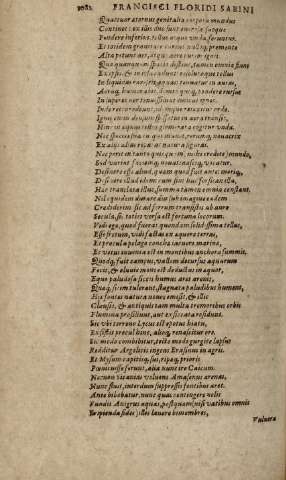 2082 FRANCISCI FLORIDI SABINI
Quattuor æternus genitalia corpora mundus
Continet: ex illis duo sunt onerosa, suoque
Pondere inferius, tellus atque unda, feruntur.
Et totidem gravitate carent, nulloq; premente
Alta petunt aër, atque aëre purior ignis.
Quæ quanquam spatio distent, tamen omnia fiunt
Ex ipsis, & in ipsa cadunt: resolutaque tellus
In liquidas rarescit aquas: tenuatus in auras,
Aëraq; humor abit: dempto quoq; pondere rursus
In superos aër tenuissimus emicat ignes.
Inde retro redeunt, idemque retexitur ordo.
Ignis enim densum spissatus in aëra transit,
Hic in aquas: tellus glomerata cogitur unda.
Nec species sua cuique manet, rerumq; novatrix
Ex aliis alias reparat natura figuras.
Nec perit in tanto quicquam, mihi credite, mundo,
Sed variat, faciemq; novat: nasciq; vocatur,
esse aliud, quam quod fuit ante: moriq;,
Desinere illud idem: cum sint huc forsan illa,
Hæc translata illuc, summa tamen omnia constant.
Nil equidem durare diu sub imagine eadem
Crediderim: sic ad ferrum venistis ab auro
Secula, sic toties versa est fortuna locorum.
Vidi ego, quod fuerat quondam solidissima tellus,
Esse fretum, vidi factas ex æquore terras,
Et procul à pelago conchæ iacuere marinæ,
Et vetus inventa est in montibus anchora summis.
Quodq; fuit campus, vallem decursus aquarum
Fecit, & eluvie mons est deductus in æquor,
Eque paludosa siccis humus aret arenis,
Quæq; sitim tulerant, stagnata paludibus hument,
Hic fontes natura novos emisit, & illic
Clausit, & antiquis tam multa tremoribus orbis
Flumina prosiliunt, aut exsiccata residunt.
Sic ubi terreno Lycus est epotus hiatu,
Existit procul hinc, alioq; renascitur ore.
Sic modo combibitur, tecto modo gurgite lapsus
Redditur Argolicis ingens Erasinus in agris.
Et Mysum capitisq; sui, ripæq; prioris
Pœnituisse ferunt, alia nunc ire Caicum.
Necnon Sicanias volvens Amasenus arenas,
Nunc fluit, interdum suppressis fontibus aret.
Ante bibebatur, nunc quas contingere nolis
Fundit Anigrus aquas, postquam (nisi vatibus omnis
Eripienda fides) illic lavere bimembres,
Vulnera